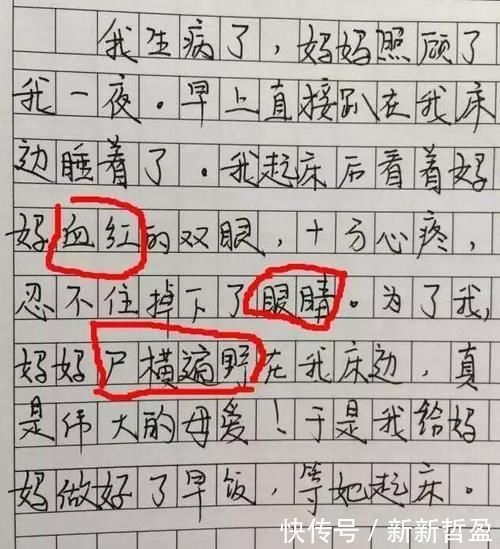 我生病了，妈妈照顾了
我一夜。早上直接趴在我床
边睡着了。我起床后看着妈
妈血红的双眼，十分心疼，
忍不住掉下了眼睛。为了我，
妈妈尸横遍野在我床边，真
是伟大的母爱！于是我给妈
妈做好了早饭，等她起床。
快传号／新新哲盈